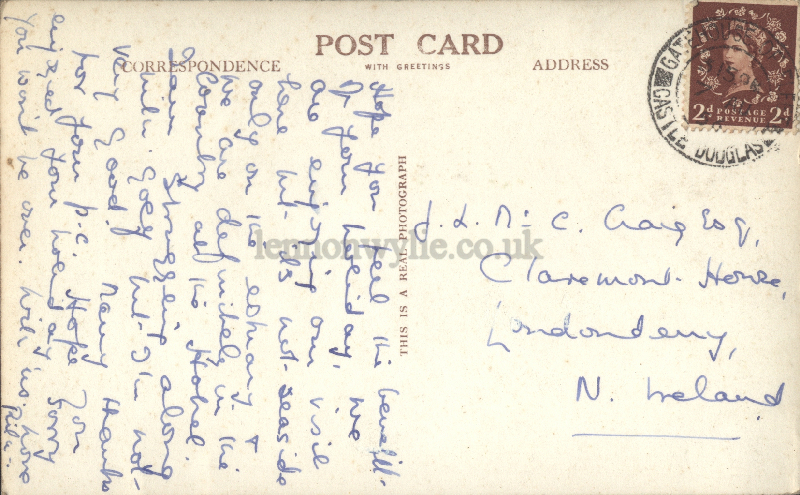 POST CARD
WITH GREETINGS
CORRESPONDENCE
ADDRESS
THIS IS A REAL PHOTOGRAPH
Hope you feel the benefit
of your holiday. We
are enjoying our visit
here but it's not seaside
only on the estuary &
we are definitely in the
Country at the Hotel.
I am struggling along
with Golf but I'm not
very good! Many thanks
for your p.c. Hope you
enjoyed your holiday sorry
you won't be over. With us. love
Rita
J. L. McC. Craig Esq,
Claremont House,
Londonderry,
N. Ireland
GATEHOUSE
CASTLE DOUGLAS
2d POSTAGE 2d
REVENUE
lennonwylie.co.uk